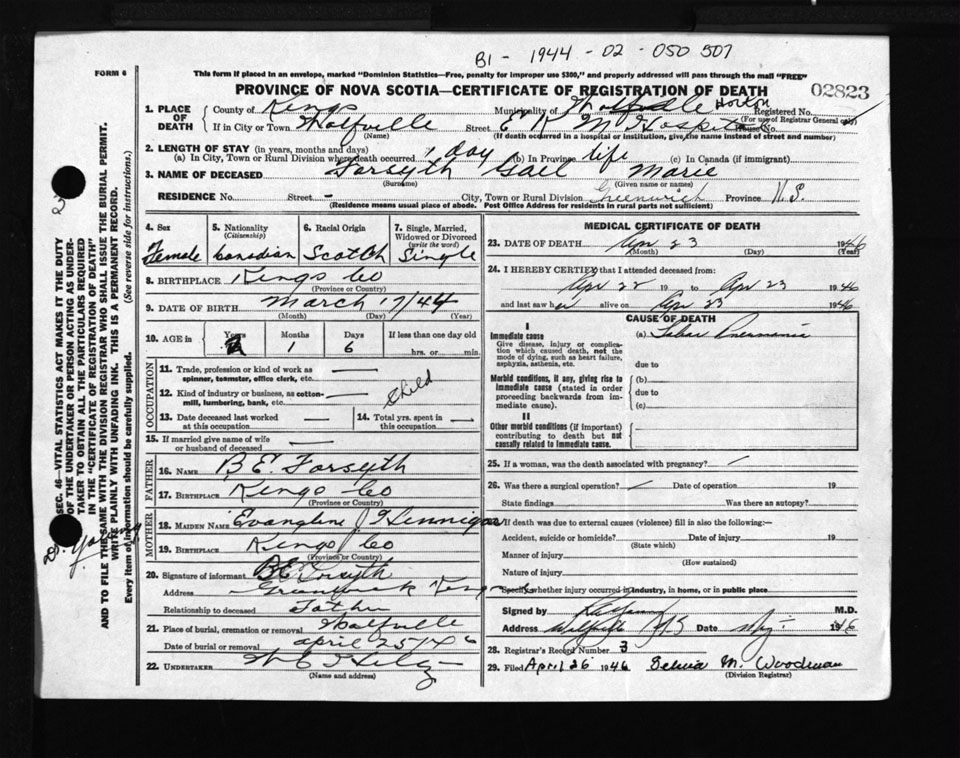 B1 - 1944 - 02 - 050 507
FORM 6
This form if placed in an envelope, marked "Dominion Statistics—Free, penalty for improper use $300," and properly addressed will pass through the mail "FREE"
PROVINCE OF NOVA SCOTIA—CERTIFICATE OF REGISTRATION OF DEATH 02823
1. PLACE OF DEATH County of Kings Municipality of Wolfville Horton Registered No.
(For use of Registrar General only)
If in City or Town Wolfville Street E K M Hospital House No.
(Name) (If death occurred in a hospital or institution, give the name instead of street and number)
2. LENGTH OF STAY (in years, months and days)
(a) In City, Town or Rural Division where death occurred 1 day (b) In Province life (c) In Canada (if immigrant)
3. NAME OF DECEASED Forsyth Gail Marie
(Surname) (Given name or names)
RESIDENCE No. Street - City, Town or Rural Division Greenwich Province N.S.
(Residence means usual place of abode. Post Office Address for residents in rural parts not sufficient)
4. Sex Female
5. Nationality (Citizenship) Canadian
6. Racial Origin Scotch
7. Single, Married, Widowed or Divorced (write the word) Single
8. BIRTHPLACE Kings Co
(Province or Country)
9. DATE OF BIRTH March 17/44
(Month) (Day) (Year)
10. AGE in Years 2 Months 1 Days 6 If less than one day old
hrs. or min.
OCCUPATION
11. Trade, profession or kind of work as spinner, teamster, office clerk, etc.
12. Kind of industry or business, as cotton-mill, lumbering, bank, etc. Child
13. Date deceased last worked at this occupation
14. Total yrs. spent in this occupation
15. If married give name of wife or husband of deceased
FATHER
16. NAME B. E. Forsyth
17. BIRTHPLACE Kings Co
(Province or Country)
MOTHER
18. MAIDEN NAME Evangline J Hennigar
19. BIRTHPLACE Kings Co
(Province or Country)
20. Signature of informant B E Forsyth
Address Greenwich Kings
Relationship to deceased Father
21. Place of burial, cremation or removal Wolfville
Date of burial or removal april 25/46
22. UNDERTAKER
(Name and address)
MEDICAL CERTIFICATE OF DEATH
23. DATE OF DEATH Apr 23 1946
(Month) (Day) (Year)
24. I HEREBY CERTIFY that I attended deceased from:
Apr 22 19 to Apr 23 1946
and last saw her alive on Apr 23 1946
CAUSE OF DEATH
I
Immediate cause (a) Lobar Pneumonia
Give disease, injury or complication which caused death, not the mode of dying, such as heart failure, asphyxia, asthenia, etc.
due to
Morbid conditions, if any, giving rise to immediate cause (stated in order proceeding backwards from immediate cause).
(b)
due to
(c)
II
Other morbid conditions (if important) contributing to death but not causally related to immediate cause.
25. If a woman, was the death associated with pregnancy?
26. Was there a surgical operation? Date of operation 19
State findings Was there an autopsy?
27. If death was due to external causes (violence) fill in also the following:—
Accident, suicide or homicide? Date of injury 19
(State which)
Manner of injury
(How sustained)
Nature of injury
Specify whether injury occurred in industry, in home, or in public place
Signed by M.D.
Address Wolfville NS Date May 1 1946
28. Registrar's Record Number 3
29. Filed April 26 1946 Selena M. Woodman
(Division Registrar)
SEC. 46—VITAL STATISTICS ACT MAKES IT THE DUTY
OF THE UNDERTAKER OR PERSON ACTING AS UNDER-
TAKER TO OBTAIN ALL THE PARTICULARS REQUIRED
IN THE "CERTIFICATE OF REGISTRATION OF DEATH"
AND TO FILE THE SAME WITH THE DIVISION REGISTRAR WHO SHALL ISSUE THE BURIAL PERMIT.
WRITE PLAINLY WITH UNFADING INK. THIS IS A PERMANENT RECORD.
Every item of information should be carefully supplied. (See reverse side for instructions.)